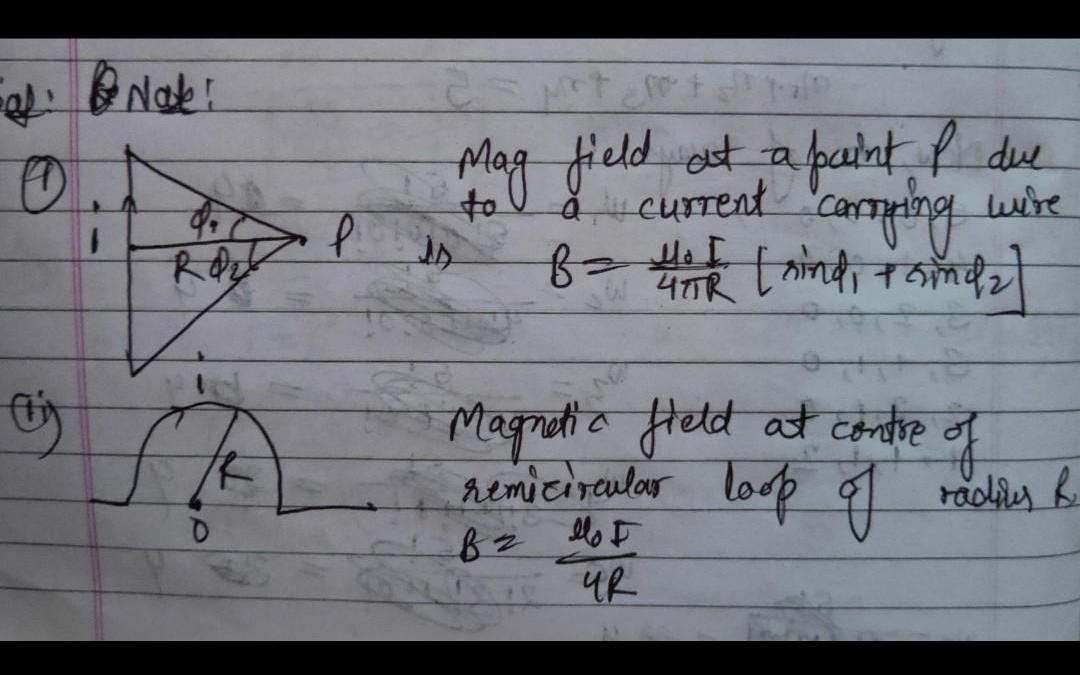 Note:
(i)
i
φ₁
R φ₂
P
Mag field at a point P due
to a current carrying wire
is B = μ₀I/4πR [sinφ₁ + sinφ₂]
(ii)
i
R
O
Magnetic field at centre of
semicircular loop of radius R
B = μ₀I/4R